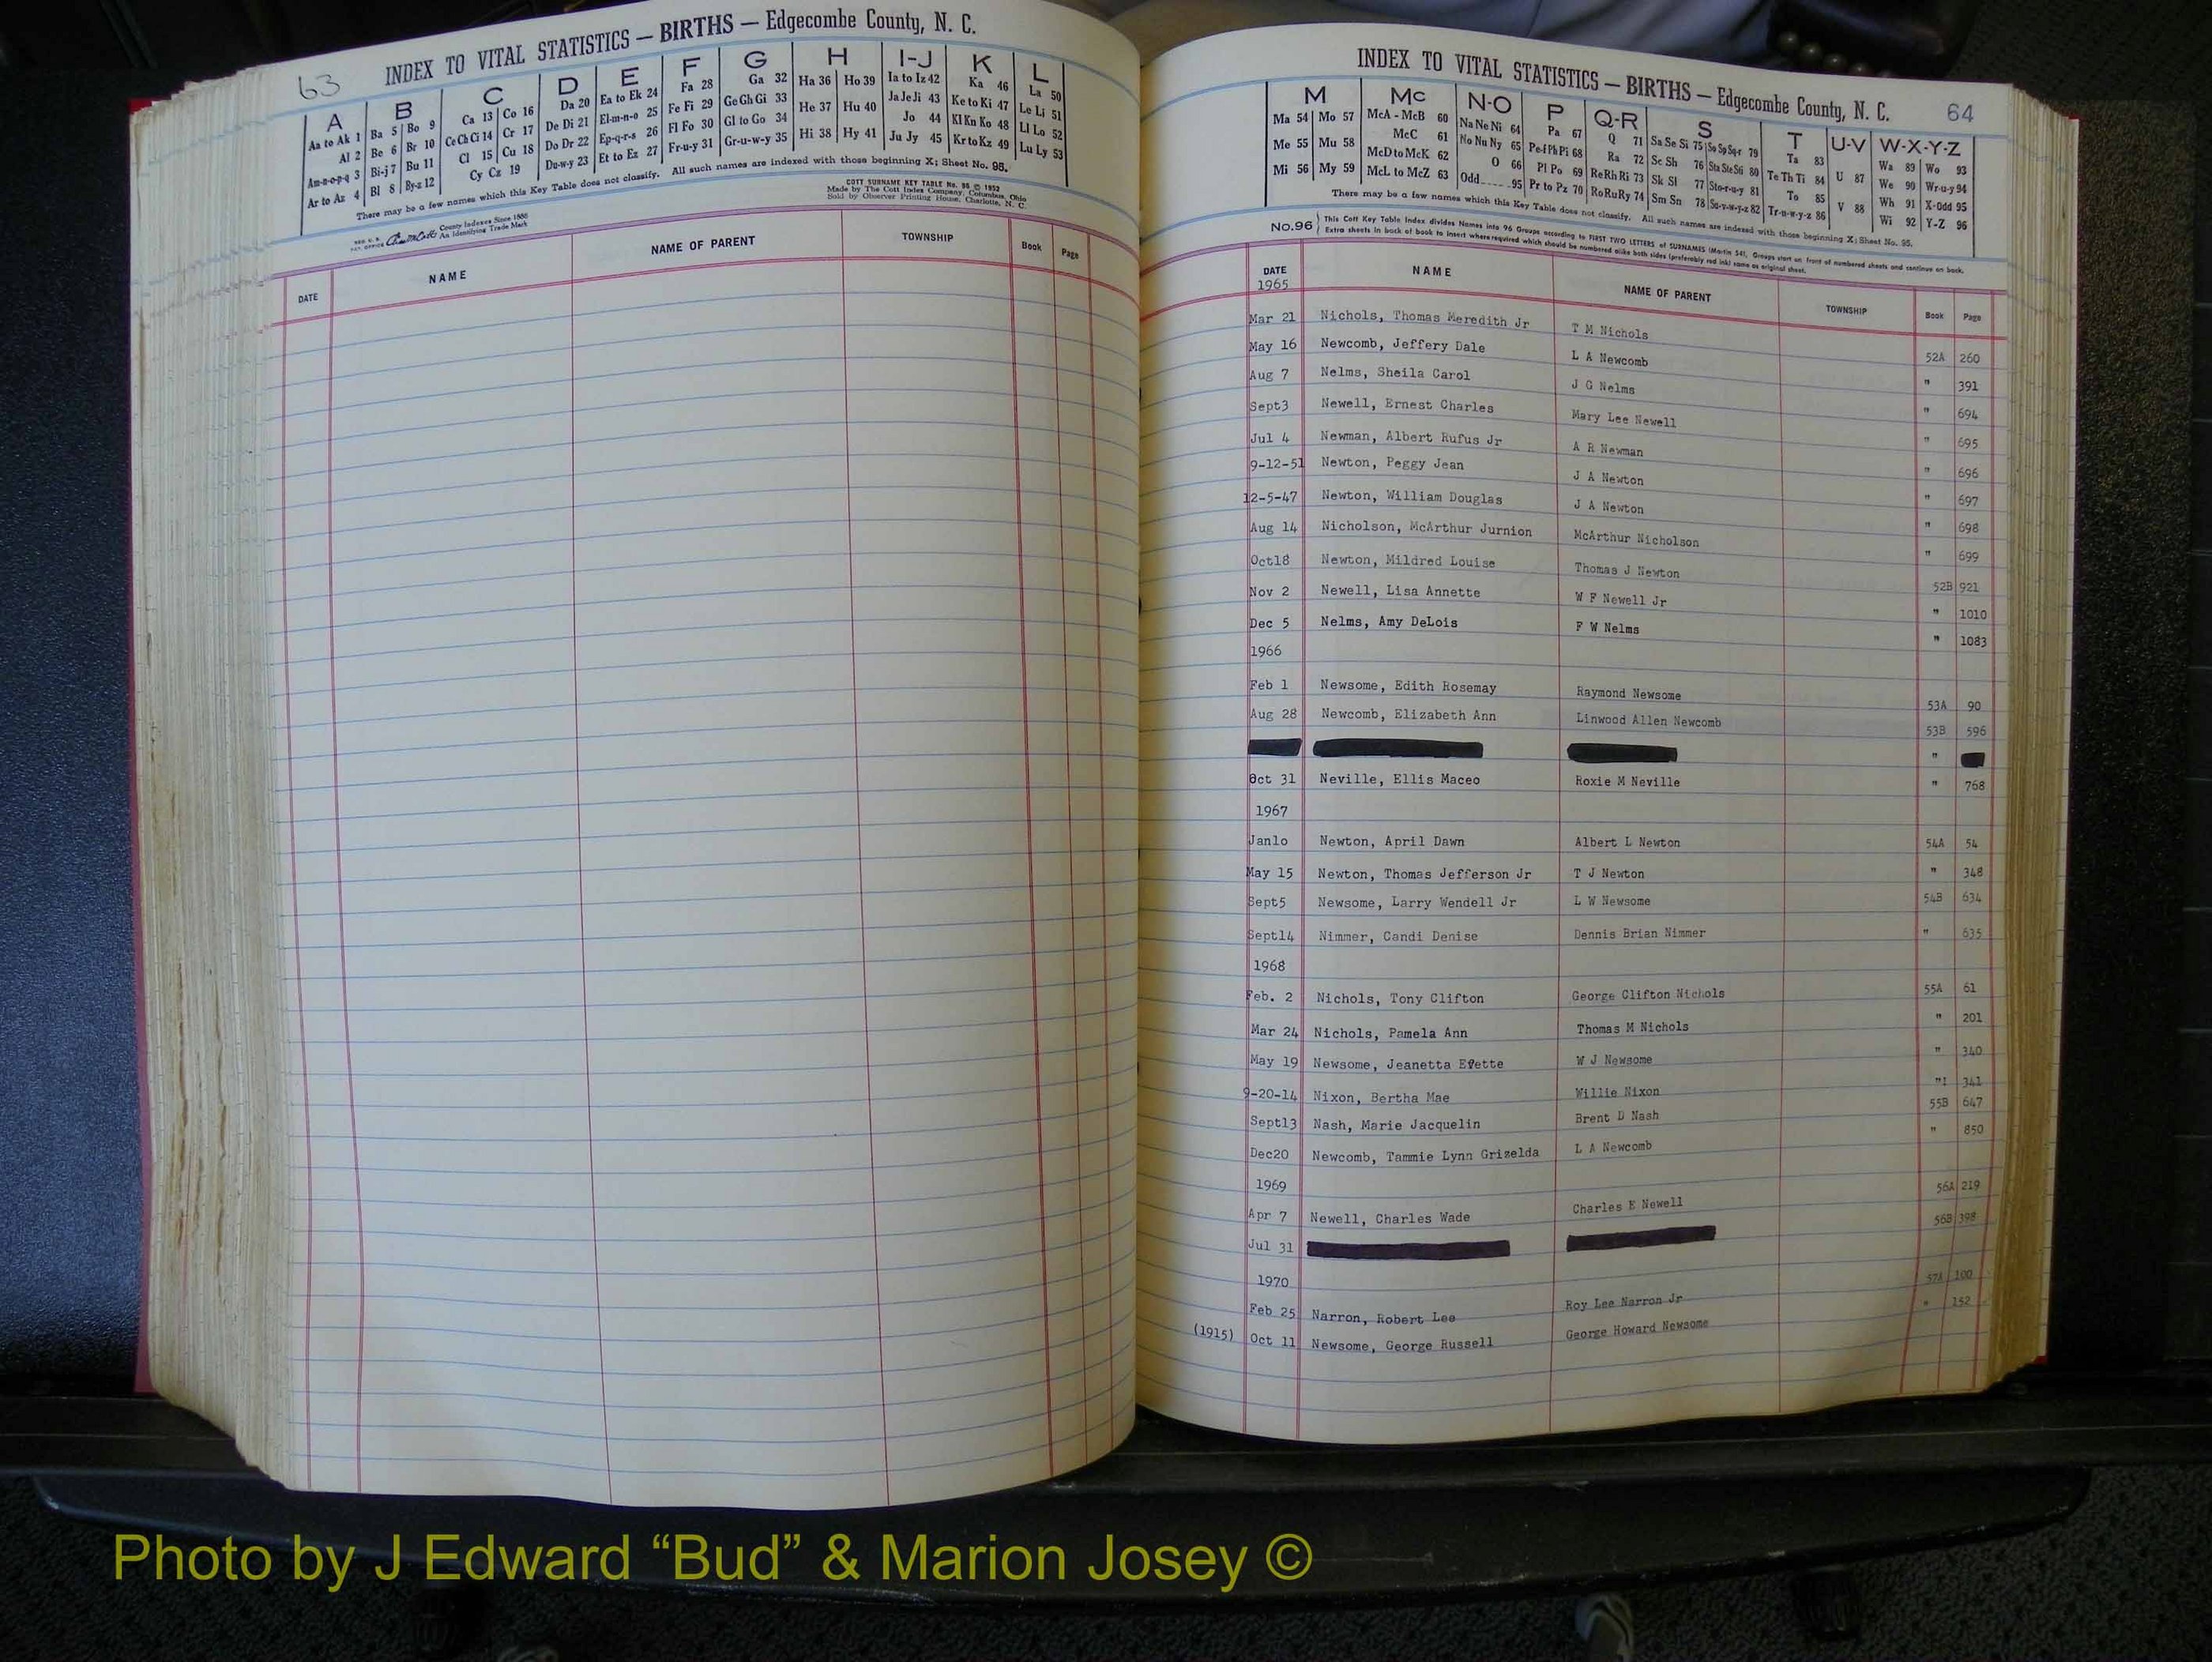 63
INDEX TO VITAL STATISTICS — BIRTHS — Edgecombe County, N. C.
A B C D E F G H I-J K L
Aa to Ak 1 Ba 5 Bo 9 Ca 13 Co 16 Da 20 Ea to Ek 24 Fa 28 Ga 32 Ha 36 Ho 39 Ia to Iz 42 Ka 46 La 50
Al 2 Be 6 Br 10 Ce Ch Ci 14 Cr 17 De Di 21 El-m-n-o 25 Fe Fi 29 Ge Gh Gi 33 He 37 Hu 40 Ja Je Ji 43 Ke to Ki 47 Le Li 51
Am-n-o-p-q 3 Bi-j 7 Bu 11 Cl 15 Cu 18 Do Dr 22 Ep-q-r-s 26 Fl Fo 30 Gl to Go 34 Hi 38 Hy 41 Jo 44 Kl Kn Ko 48 Ll Lo 52
Ar to Az 4 Bl 8 By-z 12 Cy Cz 19 Du-w-y 23 Et to Ez 27 Fr-u-y 31 Gr-u-w-y 35 Ju Jy 45 Kr to Kz 49 Lu Ly 53
There may be a few names which this Key Table does not classify. All such names are indexed with those beginning X; Sheet No. 95.
County Indexes Since 1888
An Identifying Trade Mark
COTT SURNAME KEY TABLE No. 96 © 1952
Made by The Cott Index Company, Columbus, Ohio
Sold by Observer Printing House, Charlotte, N. C.
DATE NAME NAME OF PARENT TOWNSHIP Book Page
INDEX TO VITAL STATISTICS — BIRTHS — Edgecombe County, N. C.
64
M Mc N-O P Q-R S T U-V W-X-Y-Z
Ma 54 Mo 57 McA - McB 60 Na Ne Ni 64 Pa 67 Q 71 Sa Se Si 75 So Sp Sq-r 79 Ta 83 U 87 Wa 89 Wo 93
Me 55 Mu 58 McC 61 No Nu Ny 65 Pe-f Ph Pi 68 Ra 72 Sc Sh 76 Sta Ste Sti 80 Te Th Ti 84 V 88 We 90 Wr-u-y 94
Mi 56 My 59 McD to McK 62 O 66 Pl Po 69 Re Rh Ri 73 Sk Sl 77 Sto-r-u-y 81 To 85 Wh 91 X-Odd 95
McL to McZ 63 Odd 95 Pr to Pz 70 Ro Ru Ry 74 Sm Sn 78 Su-v-w-y-z 82 Tr-u-w-y-z 86 Wi 92 Y-Z 96
There may be a few names which this Key Table does not classify. All such names are indexed with those beginning X; Sheet No. 95.
No. 96 This Cott Key Table Index divides Names into 96 Groups according to FIRST TWO LETTERS of SURNAMES (Martin 54). Groups start on front of numbered sheets and continue on back.
Extra sheets in back of book to insert where required which should be numbered alike both sides (preferably red ink) same as original sheet.
DATE NAME NAME OF PARENT TOWNSHIP Book Page
1965
Mar 21 Nichols, Thomas Meredith Jr T M Nichols 52A 260
May 16 Newcomb, Jeffery Dale L A Newcomb " 391
Aug 7 Nelms, Sheila Carol J G Nelms " 694
Sept3 Newell, Ernest Charles Mary Lee Newell " 695
Jul 4 Newman, Albert Rufus Jr A R Newman " 696
9-12-51 Newton, Peggy Jean J A Newton " 697
12-5-47 Newton, William Douglas J A Newton " 698
Aug 14 Nicholson, McArthur Jurnion McArthur Nicholson " 699
Oct18 Newton, Mildred Louise Thomas J Newton 52B 921
Nov 2 Newell, Lisa Annette W F Newell Jr " 1010
Dec 5 Nelms, Amy DeLois F W Nelms " 1083
1966
Feb 1 Newsome, Edith Rosemay Raymond Newsome 53A 90
Aug 28 Newcomb, Elizabeth Ann Linwood Allen Newcomb 53B 596
"
Oct 31 Neville, Ellis Maceo Roxie M Neville " 768
1967
Jan10 Newton, April Dawn Albert L Newton 54A 54
May 15 Newton, Thomas Jefferson Jr T J Newton " 348
Sept5 Newsome, Larry Wendell Jr L W Newsome 54B 634
Sept14 Nimmer, Candi Denise Dennis Brian Nimmer " 635
1968
Feb. 2 Nichols, Tony Clifton George Clifton Nichols 55A 61
Mar 24 Nichols, Pamela Ann Thomas M Nichols " 201
May 19 Newsome, Jeanetta Evette W J Newsome " 340
9-20-14 Nixon, Bertha Mae Willie Nixon " 341
Sept13 Nash, Marie Jacquelin Brent D Nash 55B 647
Dec20 Newcomb, Tammie Lynn Grizelda L A Newcomb " 850
1969
Apr 7 Newell, Charles Wade Charles E Newell 56A 219
Jul 31 56B 398
1970
Feb 25 Narron, Robert Lee Roy Lee Narron Jr 57A 100
(1915) Oct 11 Newsome, George Russell George Howard Newsome " 152
Photo by J Edward “Bud” & Marion Josey ©